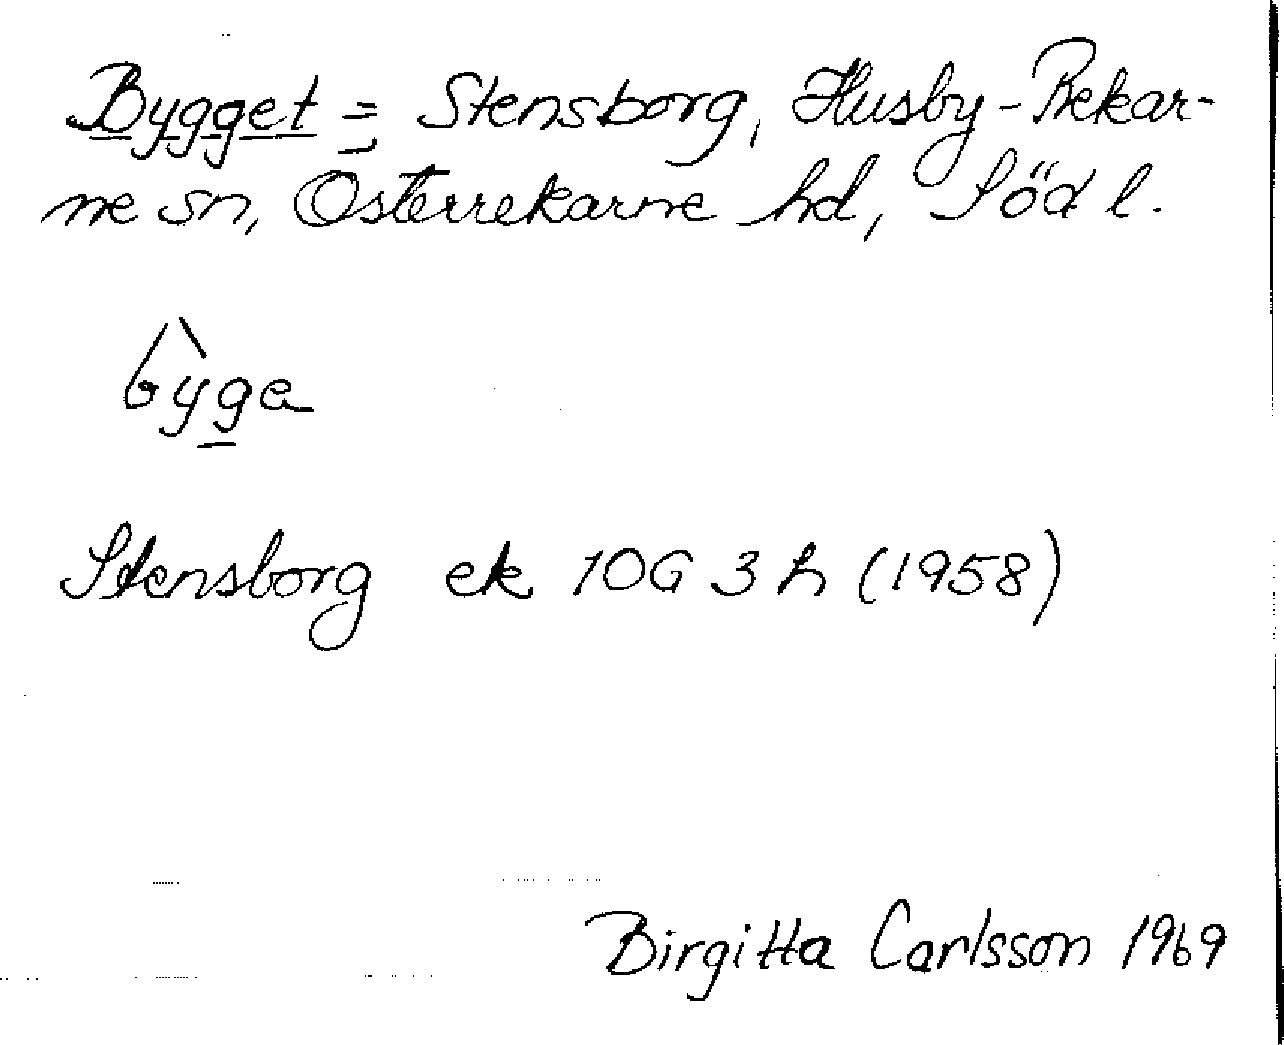 Bygget = Stensborg, Husby-Rekar-
ne sn, Österrekarne hd, Söd l.
bỳga
Stensborg ek 10G 3h (1958)
Birgitta Carlsson 1969